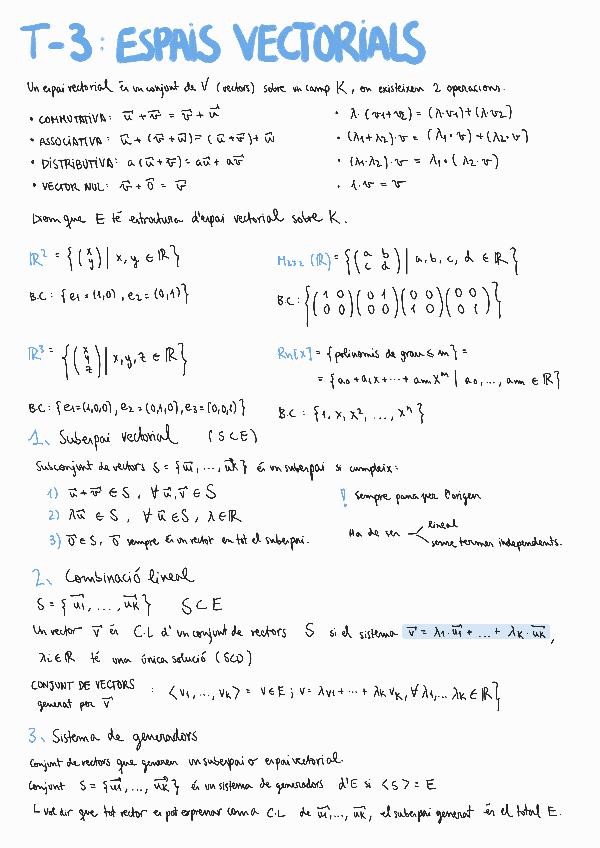 T-3: ESPAIS VECTORIALS
Un espai vectorial és un conjunt de V (vectors) sobre un camp K, on existeixen 2 operacions.
• COMMUTATIVA: u⃗ + v⃗ = v⃗ + u⃗
• ASSOCIATIVA: u⃗ + (v⃗ + w⃗) = (u⃗ + v⃗) + w⃗
• DISTRIBUTIVA: a(u⃗ + v⃗) = au⃗ + av⃗
• VECTOR NUL: v⃗ + 0⃗ = v⃗
• λ·(v1+v2) = (λ·v1)+(λ·v2)
• (λ1+λ2)·v = (λ1·v)+(λ2·v)
• (λ1·λ2)·v = λ1·(λ2·v)
• 1·v = v
Diem que E té estructura d'espai vectorial sobre K.
ℝ² = {(x y) | x, y ∈ ℝ}
B.C: {e1 = (1,0), e2 = (0,1)}
M2x2 (ℝ) = {(a b c d) | a, b, c, d ∈ ℝ}
B.C: {(1 0 0 0) (0 1 0 0) (0 0 1 0) (0 0 0 1)}
ℝ³ = {(x y z) | x, y, z ∈ ℝ}
B.C: {e1=(1,0,0), e2=(0,1,0), e3=(0,0,1)}
Rn[x] = {polinomis de grau ≤ n} =
= {a0 + a1x + ... + anxⁿ | a0, ..., an ∈ ℝ}
B.C: {1, x, x², ..., xⁿ}
1. Subespai vectorial (S⊂E)
Subconjunt de vectors S = {u⃗1, ..., u⃗k} és un subespai si cumpleix:
1) u⃗ + v⃗ ∈ S, ∀ u⃗, v⃗ ∈ S
2) λu⃗ ∈ S, ∀ u⃗ ∈ S, λ ∈ ℝ
3) 0⃗ ∈ S, 0⃗ sempre és un vector en tot el subespai.
! sempre passa per l'origen
Ha de ser
lineal
sense termes independents.
2. Combinació lineal
S = {u⃗1, ..., u⃗k} S⊂E
Un vector v⃗ és C.L d'un conjunt de vectors S si el sistema v⃗ = λ1·u⃗1 + ... + λk·u⃗k,
λi ∈ ℝ té una única solució (SCD)
CONJUNT DE VECTORS
generat per v⃗
: <v1, ..., vk> = v∈E; v = λv1 + ... + λk vk, ∀ λ1, ... λk ∈ ℝ}
3. Sistema de generadors
Conjunt de vectors que generen un subespai o espai vectorial.
Conjunt S = {u⃗1, ..., u⃗k} és un sistema de generadors d'E si <S> = E
└ vol dir que tot vector es pot expressar com a C.L de u⃗1, ..., u⃗k, el subespai generat és el total E.